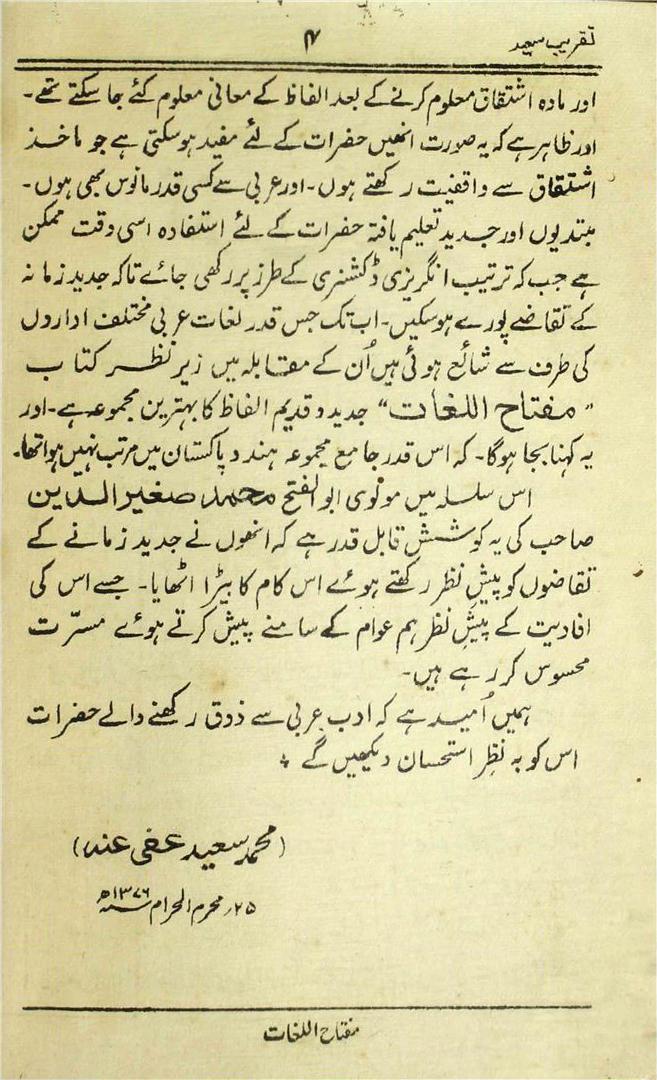 تقریب سعید
۴
اور مادہ اشتقاق معلوم کرنے کے بعد الفاظ کے معانی معلوم کئے جا سکتے تھے۔
اور ظاہر ہے کہ یہ صورت انھیں حضرات کے لئے مفید ہوسکتی ہے جو ماخذ
اشتقاق سے واقفیت رکھتے ہوں۔ اور عربی سے کسی قدر مانوس بھی ہوں۔
مبتدیوں اور جدید تعلیم یافتہ حضرات کے لئے استفادہ اسی وقت ممکن
ہے جب کہ ترتیب انگریزی ڈکشنری کے طرز پر رکھی جائے تاکہ جدید زمانہ
کے تقاضے پورے ہوسکیں۔ اب تک جس قدر لغات عربی مختلف اداروں
کی طرف سے شائع ہوئی ہیں اُن کے مقابلہ میں زیر نظر کتاب
"مفتاح اللغات" جدید و قدیم الفاظ کا بہترین مجموعہ ہے۔ اور
یہ کہنا بجا ہوگا۔ کہ اس قدر جامع مجموعہ ہند و پاکستان میں مرتب نہیں ہوا تھا۔
اس سلسلہ میں مولوی ابو الفتح محمد صغیر الدین
صاحب کی یہ کوشش قابل قدر ہے کہ انھوں نے جدید زمانے کے
تقاضوں کو پیشِ نظر رکھتے ہوئے اس کام کا بیڑا اٹھایا۔ جسے اس کی
افادیت کے پیشِ نظر ہم عوام کے سامنے پیش کرتے ہوئے مسرّت
محسوس کر رہے ہیں۔
ہمیں اُمید ہے کہ ادب عربی سے ذوق رکھنے والے حضرات
اس کو بہ نظرِ استحسان دیکھیں گے
(محمد سعید عفی عنہ)
۲۵؍ محرم الحرام ۱۳۷۶ھ
مفتاح اللغات